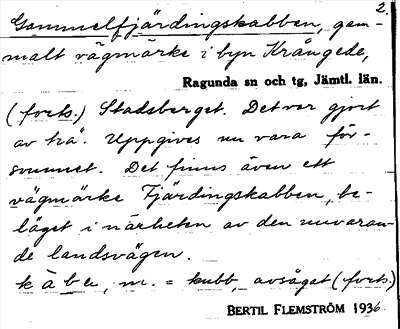 2.
Gammelfjärdingskabben, gam-
malt vägmärke i byn Krångede,
Ragunda sn och tg, Jämtl. län.
(forts.) Stadsberget. Det var gjort
av trä. Uppgives nu vara för-
svunnet. Det finns även ett
vägmärke Fjärdingskabben, be-
läget i närheten av den nuvaran-
de landsvägen.
kàbe, m. = kubb, avsågat (forts.)
BERTIL FLEMSTRÖM 1936.